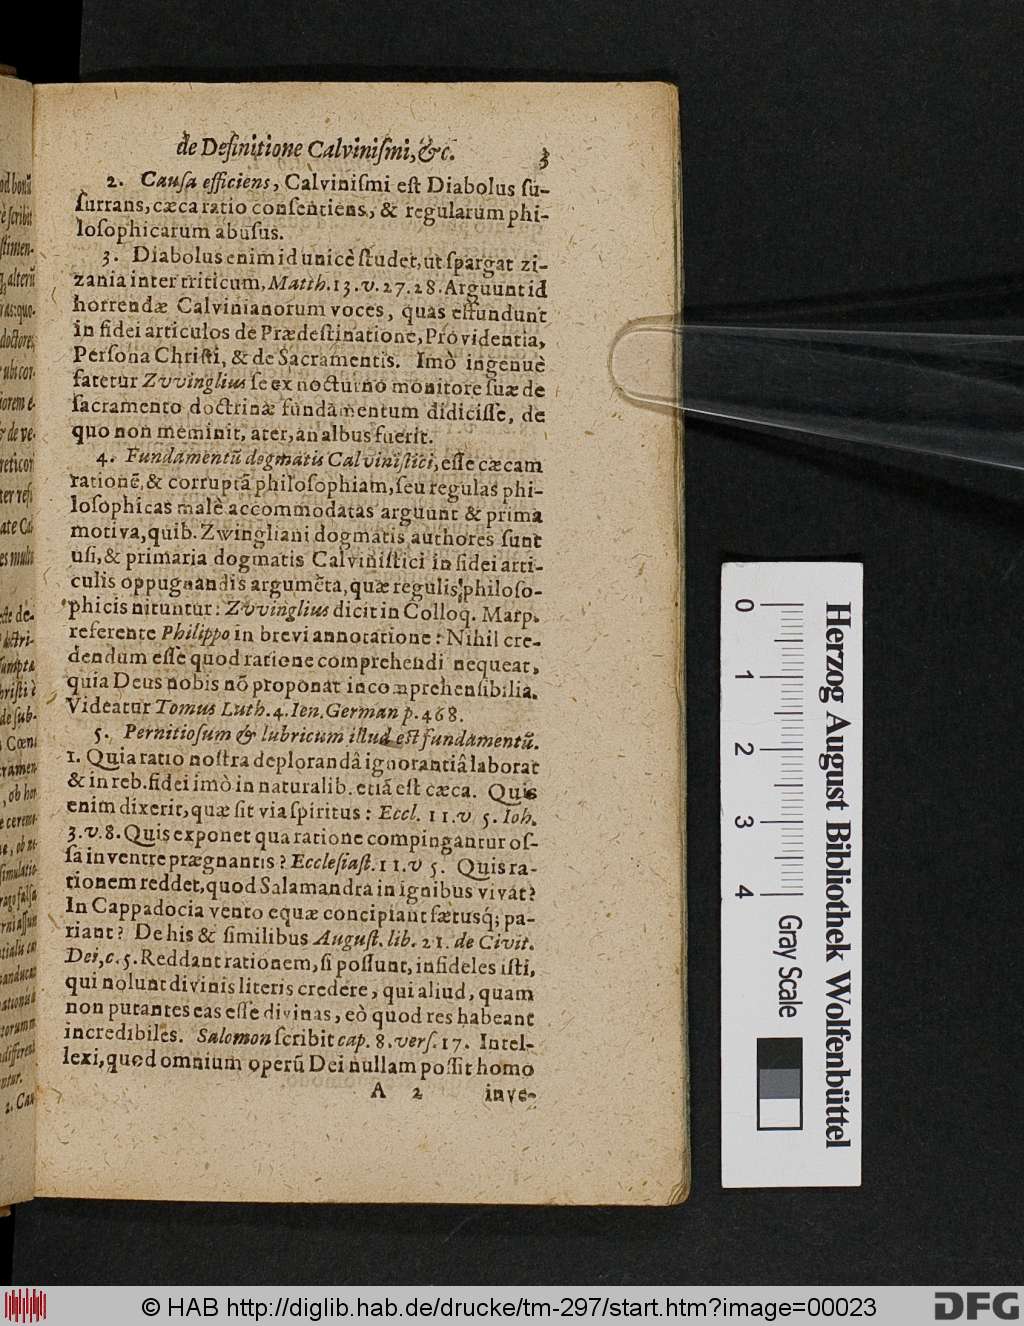 de Definitione Calviniſmi, &c. 3
2. Cauſa efficiens, Calviniſmi eſt Diabolus ſu-
ſurrans, cæca ratio conſentiens, & regularum phi-
loſophicarum abuſus.
3. Diabolus enim id unicè ſtudet, ut ſpargat zi-
zania inter triticum, Matth. 13. v. 27. 28. Arguunt id
horrendæ Calvinianorum voces, quas effundunt
in fidei articulos de Prædeſtinatione, Providentia,
Perſona Chriſti, & de Sacramentis. Imò ingenuè
fatetur Zvvinglius ſe ex nocturno monitore ſuæ de
ſacramento doctrinæ fundamentum didiciſſe, de
quo non meminit, ater, an albus fuerit.
4. Fundamentū dogmatis Calviniſtici, eſſe cæcam
rationē, & corruptā philoſophiam, ſeu regulas phi-
loſophicas malè accommodatas arguunt & prima
motiva, quib. Zwingliani dogmatis authores ſunt
uſi, & primaria dogmatis Calviniſtici in fidei arti-
culis oppugnandis argumēta, quæ regulis philoſo-
phicis nituntur: Zvvinglius dicit in Colloq. Marp.
referente Philippo in brevi annotatione: Nihil cre-
dendum eſſe quod ratione comprehendi nequeat,
quia Deus nobis nō proponat incomprehenſibilia.
Videatur Tomus Luth. 4. Ien. German p. 468.
5. Pernitioſum & lubricum illud eſt fundamentū.
1. Quia ratio noſtra deplorandâ ignorantiâ laborat
& in reb. fidei imò in naturalib. etiā eſt cæca. Quis
enim dixerit, quæ ſit via ſpiritus: Eccl. 11. v. 5. Ioh.
3. v. 8. Quis exponet qua ratione compingantur oſ-
ſa in ventre prægnantis? Eccleſiaſt. 11. v 5. Quis ra-
tionem reddet, quod Salamandra in ignibus vivat?
In Cappadocia vento equæ concipiant fætusq́; pa-
riant? De his & ſimilibus Auguſt. lib. 21. de Civit.
Dei, c. 5. Reddant rationem, ſi poſſunt, infideles iſti,
qui nolunt divinis literis credere, qui aliud, quam
non putantes eas eſſe divinas, eò quod res habeant
incredibiles. Salomon ſcribit cap. 8. verſ. 17. Intel-
lexi, quod omnium operū Dei nullam poſſit homo
A 2 inve-
0 1 2 3 4
Gray Scale
Herzog August Bibliothek Wolfenbüttel
© HAB http://diglib.hab.de/drucke/tm-297/start.htm?image=00023
DFG